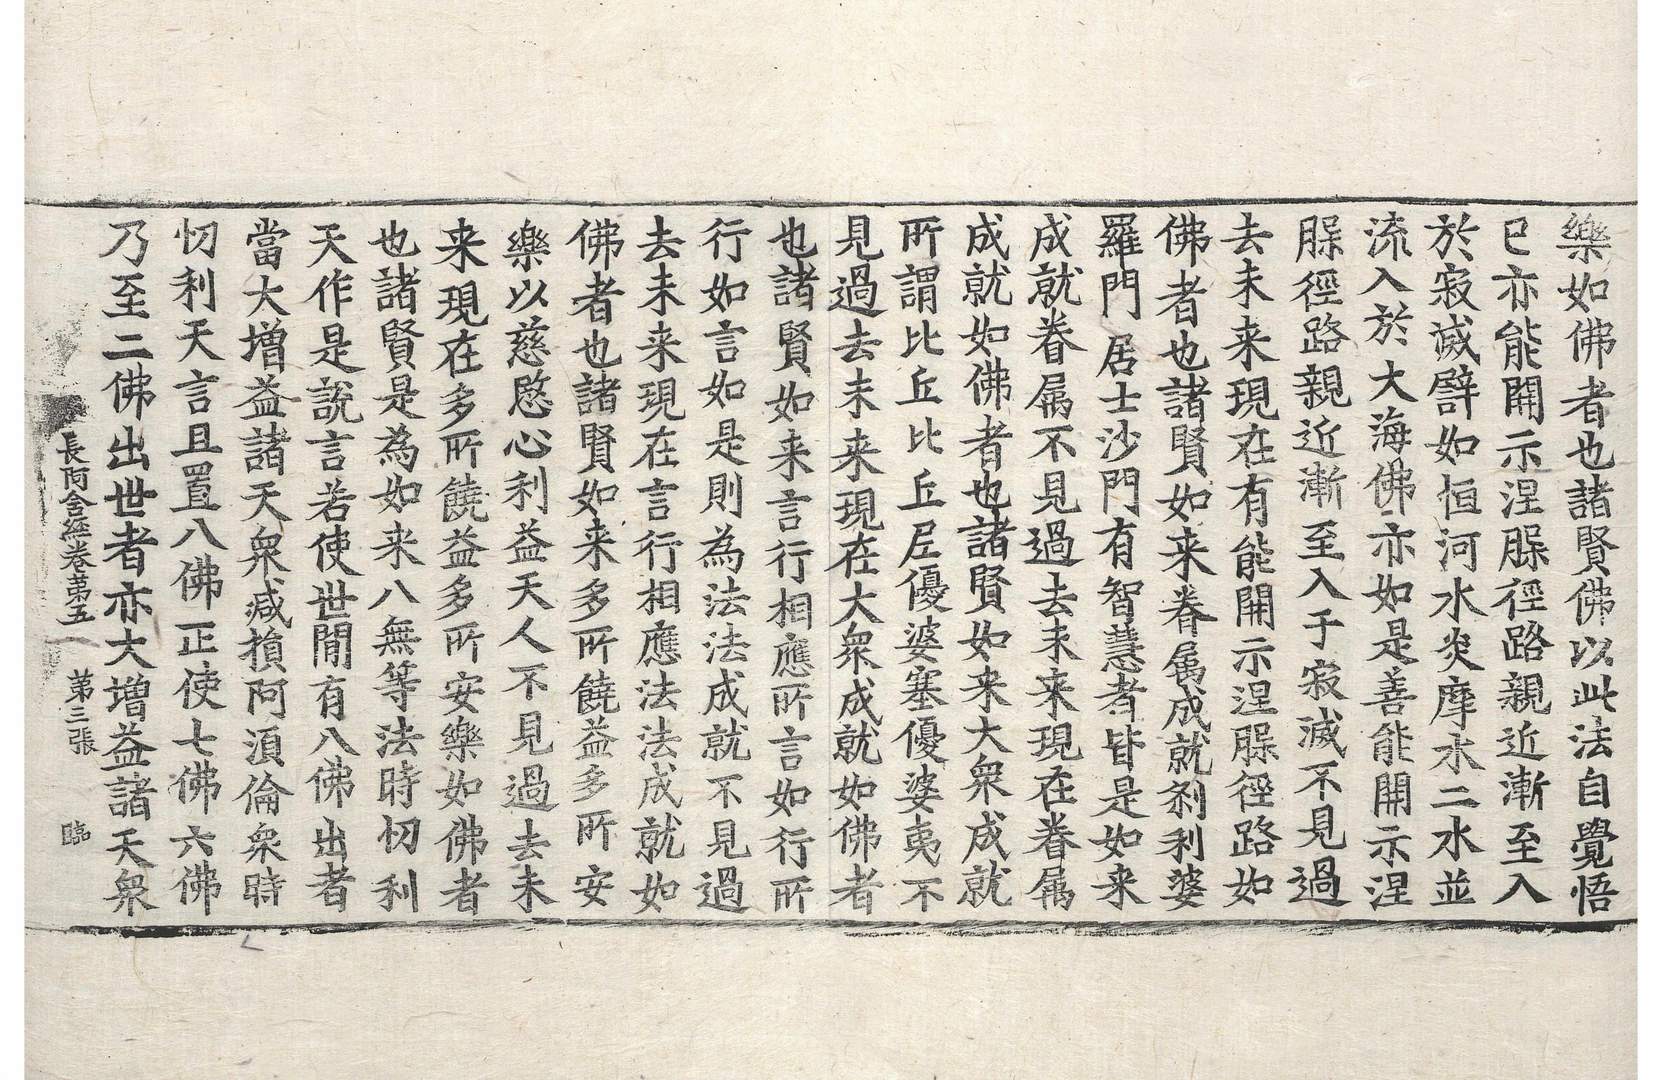 樂如佛者也諸賢佛以此法自覺悟
已亦能開示涅槃徑路親近漸至入
於寂滅譬如恒河水炎摩水二水並
流入於大海佛亦如是善能開示涅
槃徑路親近漸至入于寂滅不見過
去未来現在有能開示涅槃徑路如
佛者也諸賢如来眷属成就刹利婆
羅門居士沙門有智慧者皆是如来
成就眷属不見過去未来現在眷属
成就如佛者也諸賢如来大衆成就
所謂比丘比丘尼優婆塞優婆夷不
見過去未来現在大衆成就如佛者
也諸賢如来言行相應所言如行所
行如言如是則為法法成就不見過
去未来現在言行相應法法成就如
佛者也諸賢如来多所饒益多所安
樂以慈愍心利益天人不見過去未
来現在多所饒益多所安樂如佛者
也諸賢是為如来八無等法時忉利
天作是說言若使世間有八佛出者
當大增益諸天衆减損阿湏倫衆時
忉利天言且置八佛正使七佛六佛
乃至二佛出世者亦大增益諸天衆
長阿含經卷第五 第三張 臨